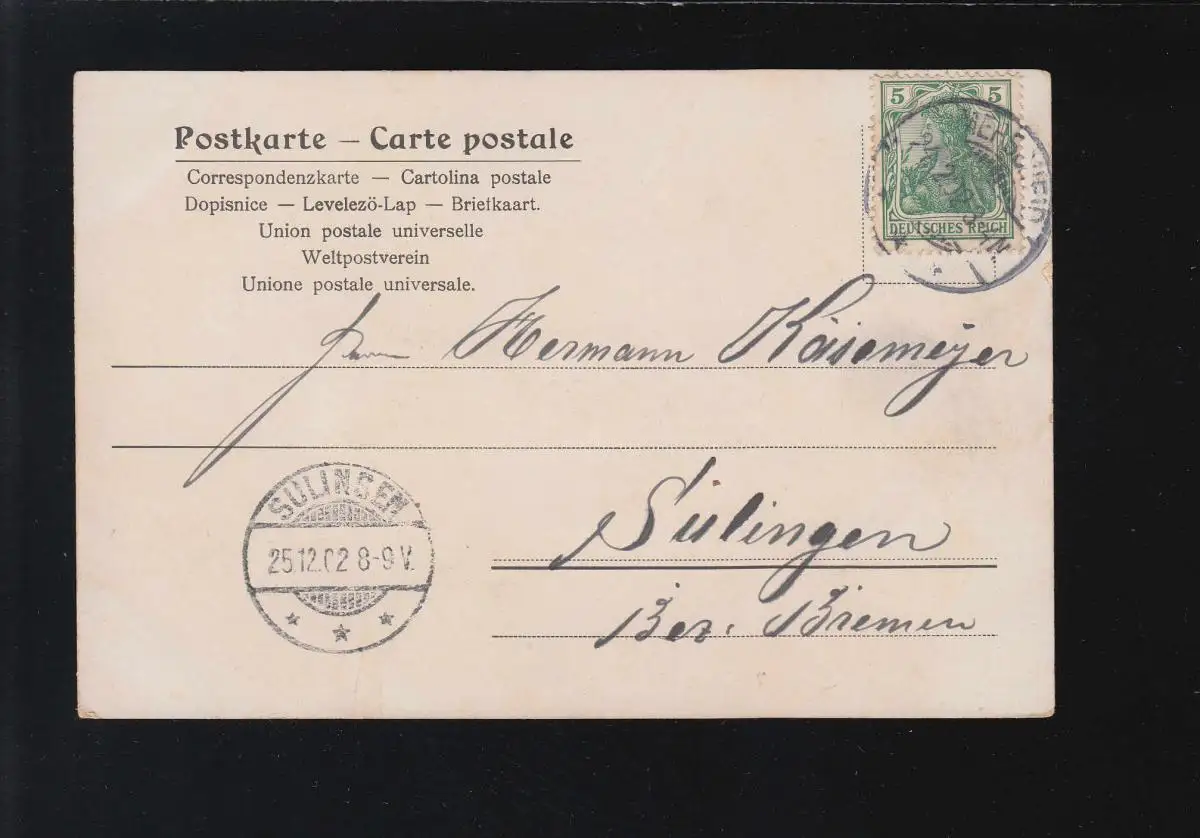 Postkarte — Carte postale
Correspondenzkarte — Cartolina postale
Dopisnice — Levelezö-Lap — Brietkaart.
Union postale universelle
Weltpostverein
Unione postale universale.
5 5
DEUTSCHES REICH
Herrn Hermann Käsemeyer
SULINGEN
25.12.02 8-9 V.
Sulingen
Bez. Bremen